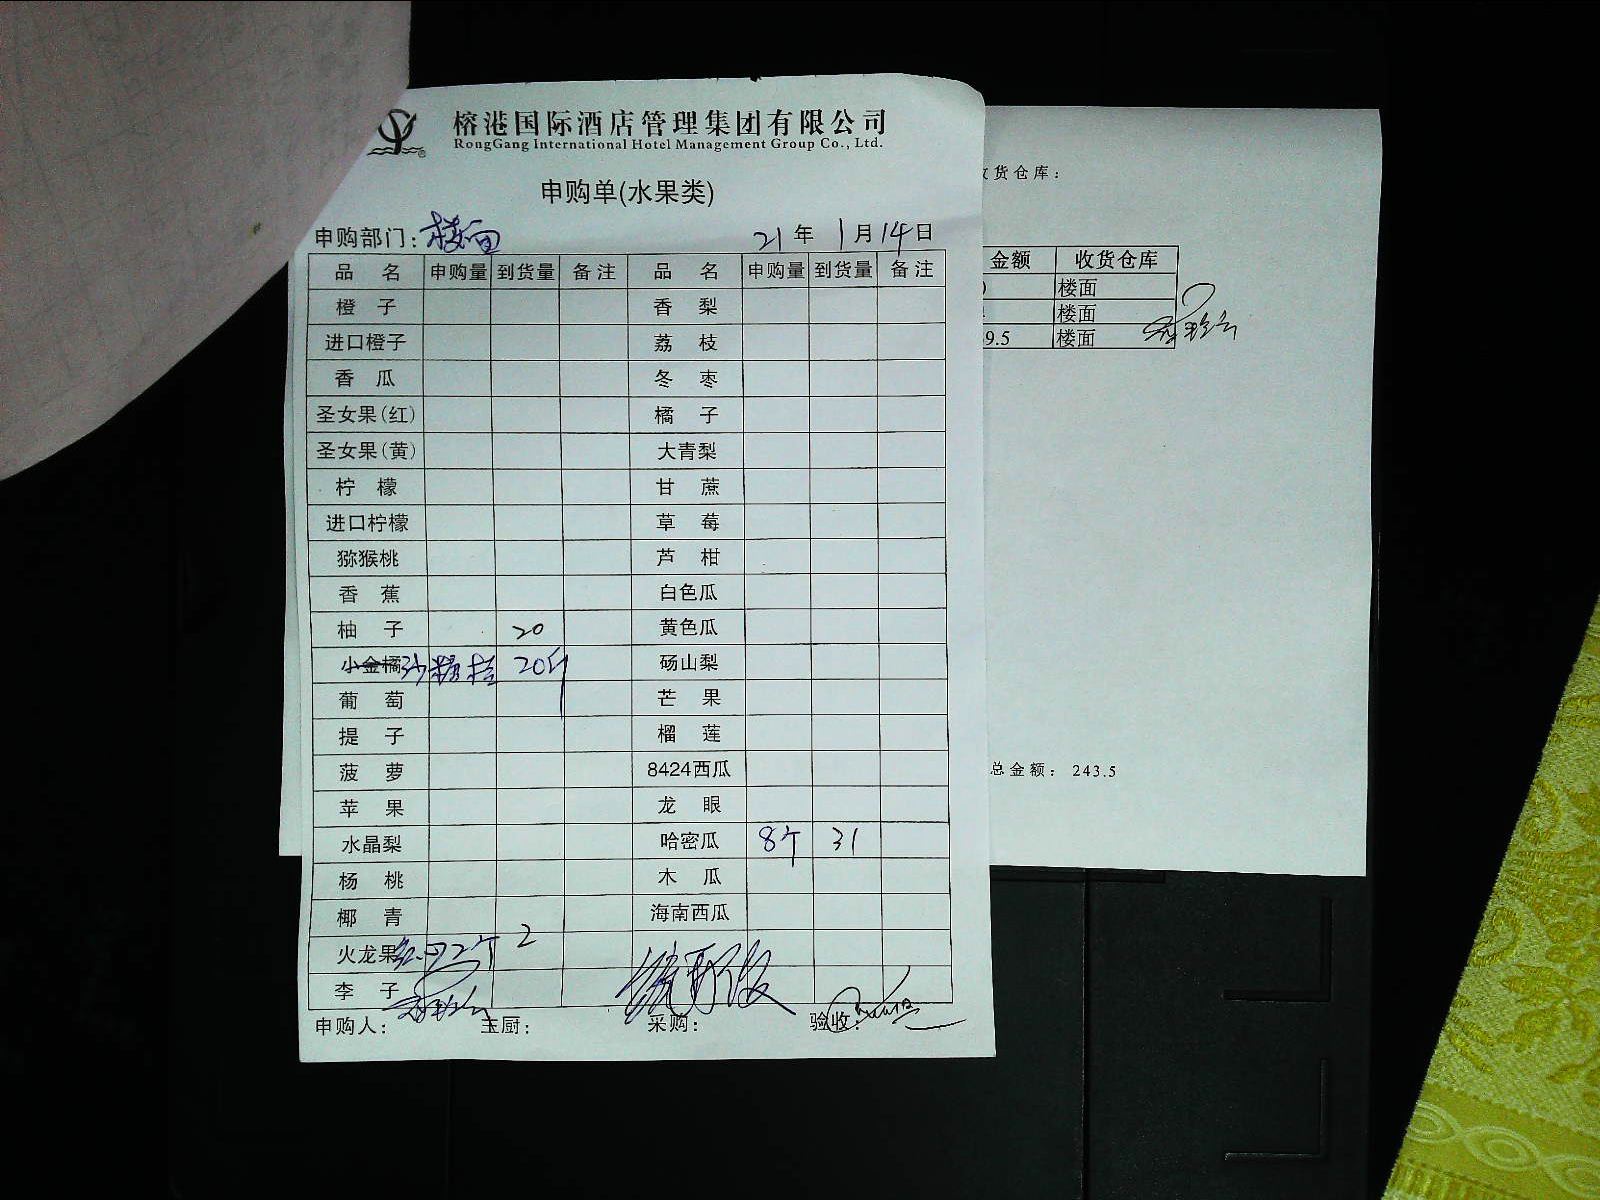 榕港国际酒店管理集团有限公司
RongGang International Hotel Management Group Co., Ltd.
申购单(水果类)
申购部门：楼面 21年1月14日
品名 申购量 到货量 备注 品名 申购量 到货量 备注
橙子 香梨
进口橙子 荔枝
香瓜 冬枣
圣女果(红) 橘子
圣女果(黄) 大青梨
柠檬 甘蔗
进口柠檬 草莓
猕猴桃 芦柑
香蕉 白色瓜
柚子 20 黄色瓜
小金橘 沙糖桔 20斤 砀山梨
葡萄 芒果
提子 榴莲
菠萝 8424西瓜
苹果 龙眼
水晶梨 哈密瓜 8个 31
杨桃 木瓜
椰青 海南西瓜
火龙果 2个 2
李子
申购人： 主厨： 采购： 验收：
收货仓库：
金额 收货仓库
楼面
楼面
9.5 楼面
总金额：243.5